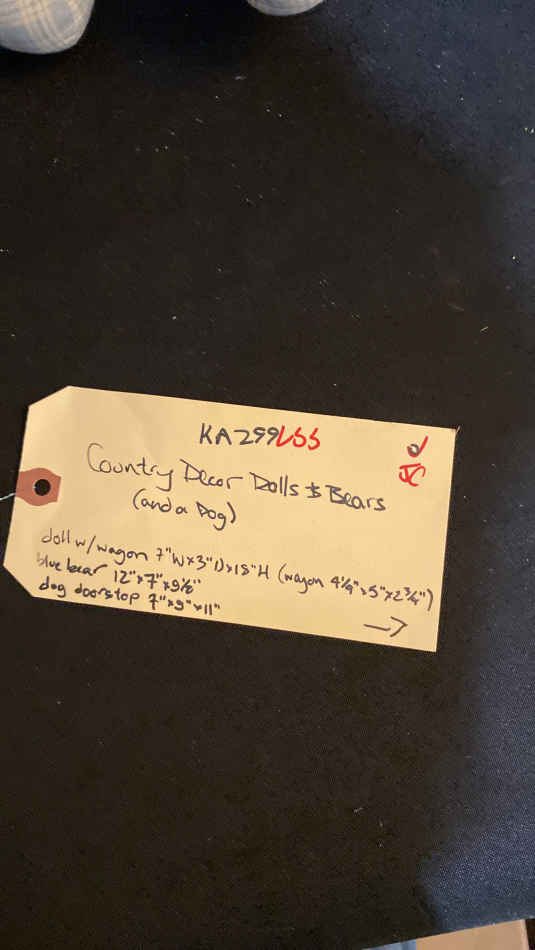 KA299LSS
Country Decor Dolls & Bears
(and a Dog)
doll w/wagon 7"W×3"D×18"H (wagon 4¼"×5"×2¾")
blue bear 12"×7"×9½"
dog doorstop 7"×9"×11"
→
JC